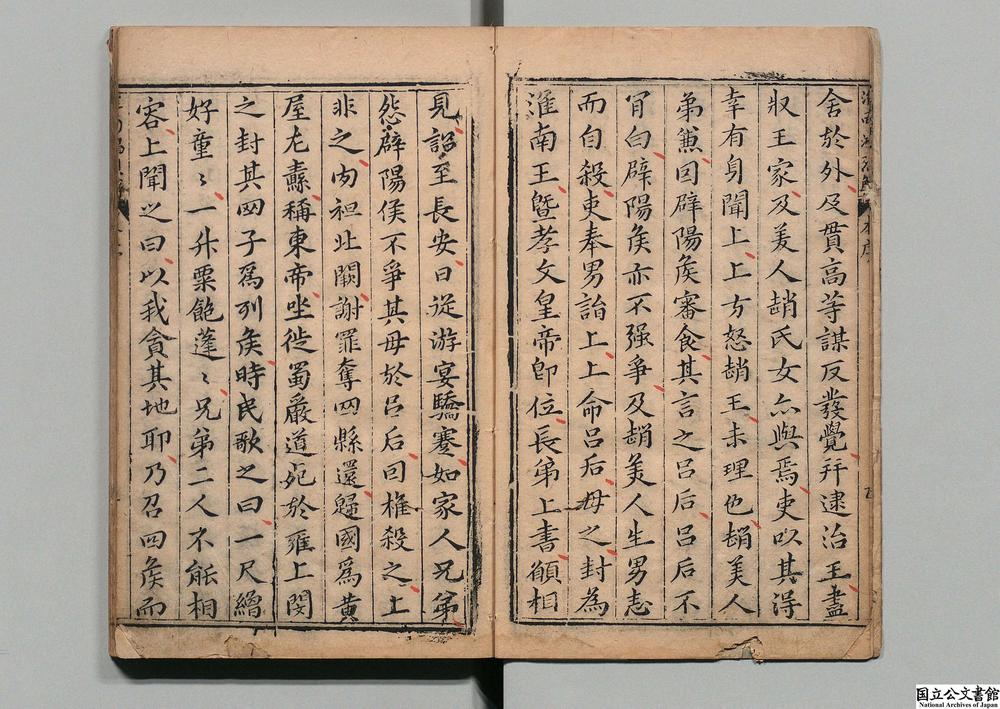 舍於外及貫高等謀反發覺并逮治王盡
収王家及美人趙氏女亦與焉吏以其得
幸有身聞上上方怒趙王未理也趙美人
弟兼因辟陽侯審食其言之吕后吕后不
肯白辟陽侯亦不强爭及趙美人生男恚
而自殺吏奉男詣上上命吕后母之封為
淮南王曁孝文皇帝卽位長弟上書願相
見詔至長安日從游宴驕蹇如家人兄弟
怨辟陽侯不爭其母於吕后因椎殺之上
非之肉袒北闕謝罪奪四縣還歸國為黄
屋左纛稱東帝坐徙蜀嚴道死於雍上閔
之封其四子爲列侯時民歌之曰一尺繒
好童〻一升粟飽蓬〻兄弟二人不能相
容上聞之曰以我貪其地耶乃召四侯而
国立公文書館
National Archives of Japan